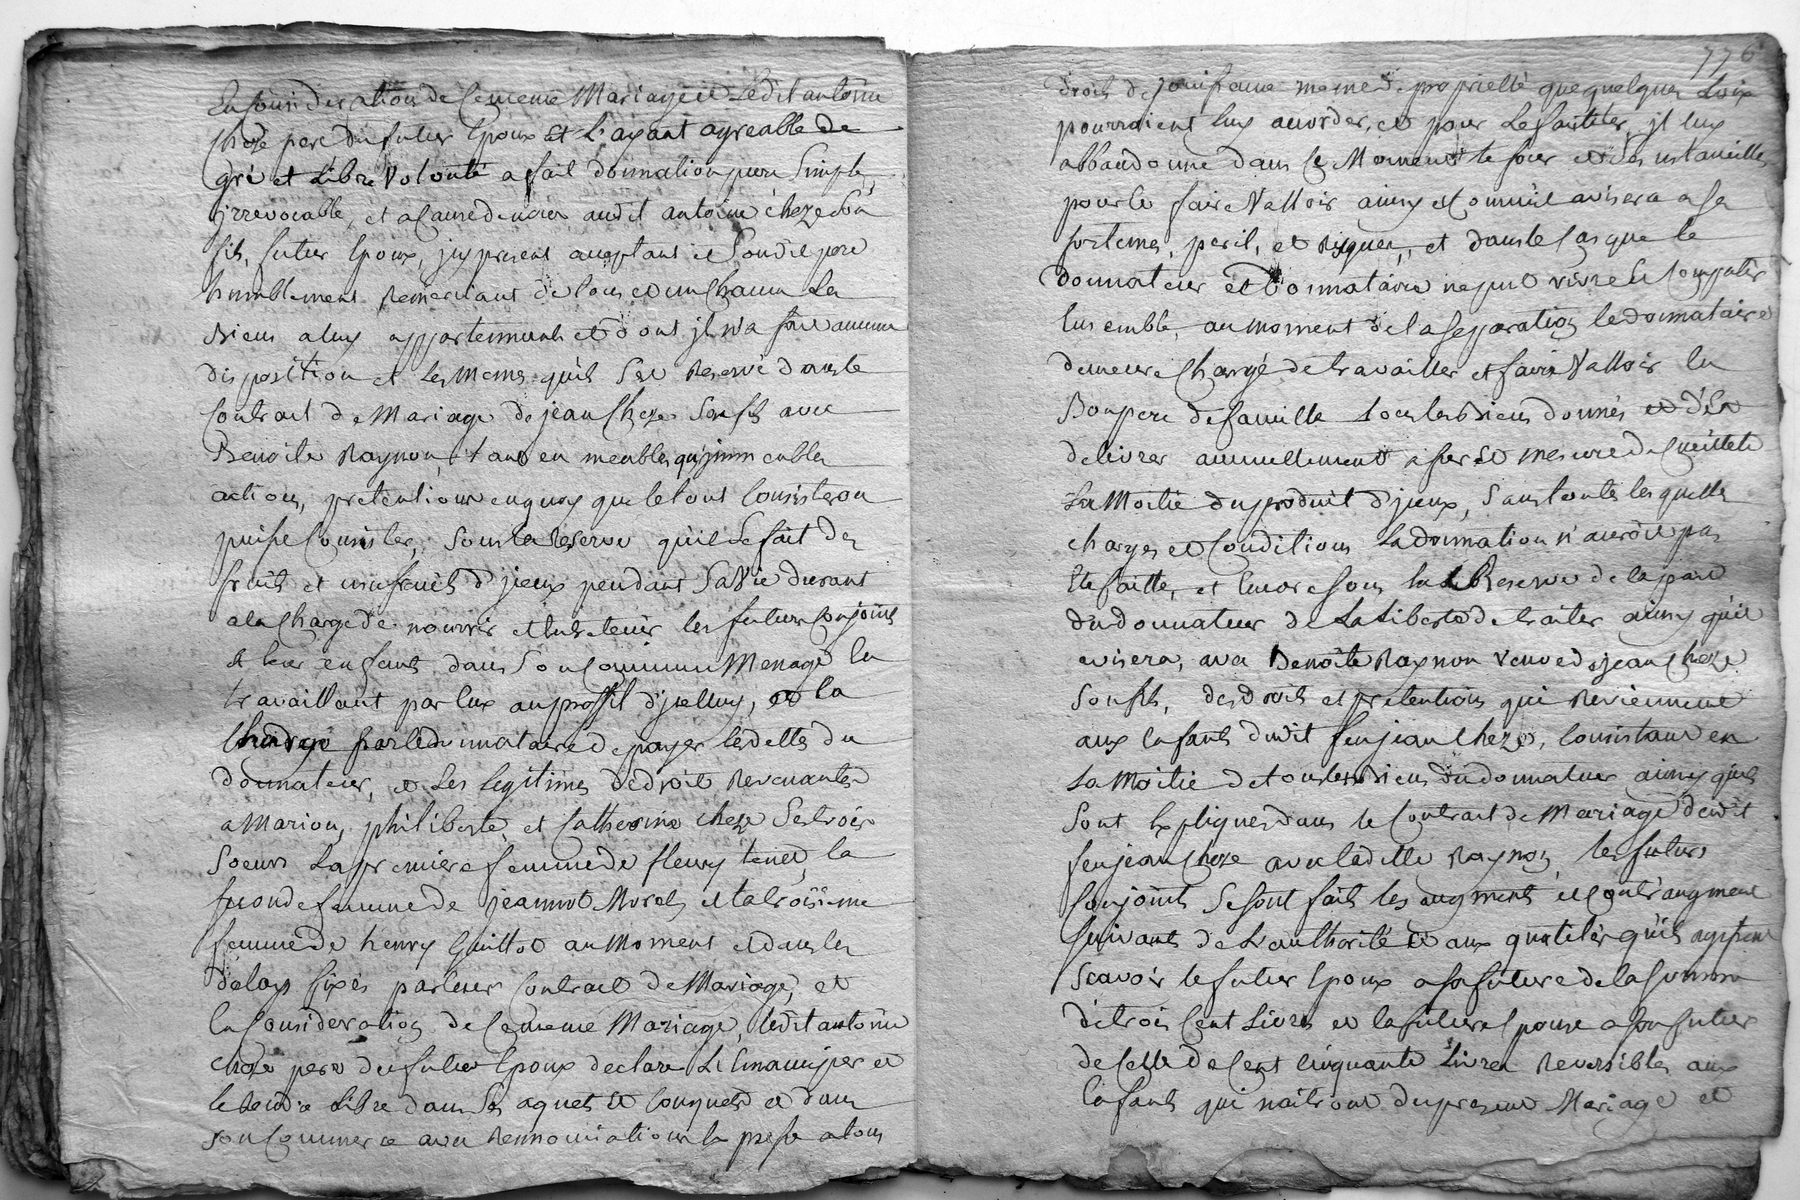 En Consideration de Ce meme Mariage et Ledit antoine
cheze pere du futur Epoux Et L'ayant agreable de
gré et Libre Volonté a fait donnation pure Simple,
jrrevocable, et a Cause de nôces audit antoine cheze Son
fils, futur Epoux, jcy present acceptant et Sondit pere
humblement Remerciant de tous et un Chacun Les
Biens a luy appartennants et dont jl n'a fait aucune
disposition et Les memes qu'il S'est Reservé dans le
Contract de Mariage de jean Cheze Son fils avec
Benoite Raynon, tant en meubles qu'jmmeubles
actions, pretentions en quoy que le tout Consiste ou
puisse Consister, Sous la Reserve qu'il Se fait des
fruits et usufruits d'jceux pendant Sa Vie durant
a la Charge de nourrir et Entretenir les futurs Conjoints
et leur enfants dans Son Commun Menage En
travaillant par Eux au proffit d'jcelluy, et la
Charge par le donnataire de payer les dettes du
donnateur, et Les Legitimes de droit Revenantes
a Marion, philiberte et Catherine cheze Ses trois
Soeurs La premiere femme de fleury la
seconde femme de jeannot Morel et la troisieme
femme de henry Guillot au Moment et dans les
delays fixés par leur Contract de Mariage, et
En Consideration de Ce meme Mariage, ledit antoine
cheze pere du futur Epoux declare L'Emanciper et
le Rendre Libre dans Ses aquets et Conquets et dans
Son Commerce avec Rennonciation Expresse a tous
776
droits de jouissance meme de proprietté que quelques Loix
pourroient luy accorder, et pour Le faciliter, jl luy
abbandonne dans Ce Moment le four et Ses ustancilles
pour le faire Valloir ainsy et Comme il avisera a Ses
fortunes, peril, et Risques, et dans le Cas que le
donnateur et donnataire ne put vivre Et Compatir
Ensemble, au moment de la Separation le donnataire
demeure Chargé de travailler et faire Valloir En
Bon pere de famille tous les Biens donnés et de
delivrer annuellement a fur et mesure de Cueillete
La Moitié du produit d'jceux, Sans toutes les quelles
charges et Conditions La donnation n'auroit pas
Eté faitte, et Encore Sous la Reserve de la part
du donnateur de La Liberté de traiter ainsy qu'il
avisera, avec Benoite Raynon Veuve de jean Cheze
Son fils, des droits et pretentions qui Reviennent
aux Enfants dudit feu jean Cheze, Consistant en
La Moitié de tous les Biens du donnateur ainsy qu'ils
Sont Expliqués dans le Contract de Mariage dudit
feu jean Cheze avec ladite Raynon, les futurs
Conjoints Se Sont faits les augments et Contraugment
Suivants de L'authorité et aux qualités qu'ils agissent
Scavoir le futur Epoux a Sa future de la Somme
de trois Cent Livres et la future Epouse a Son futur
de Celle de Cent Cinquante Livres Reversibles aux
Enfants qui naitront du present Mariage et